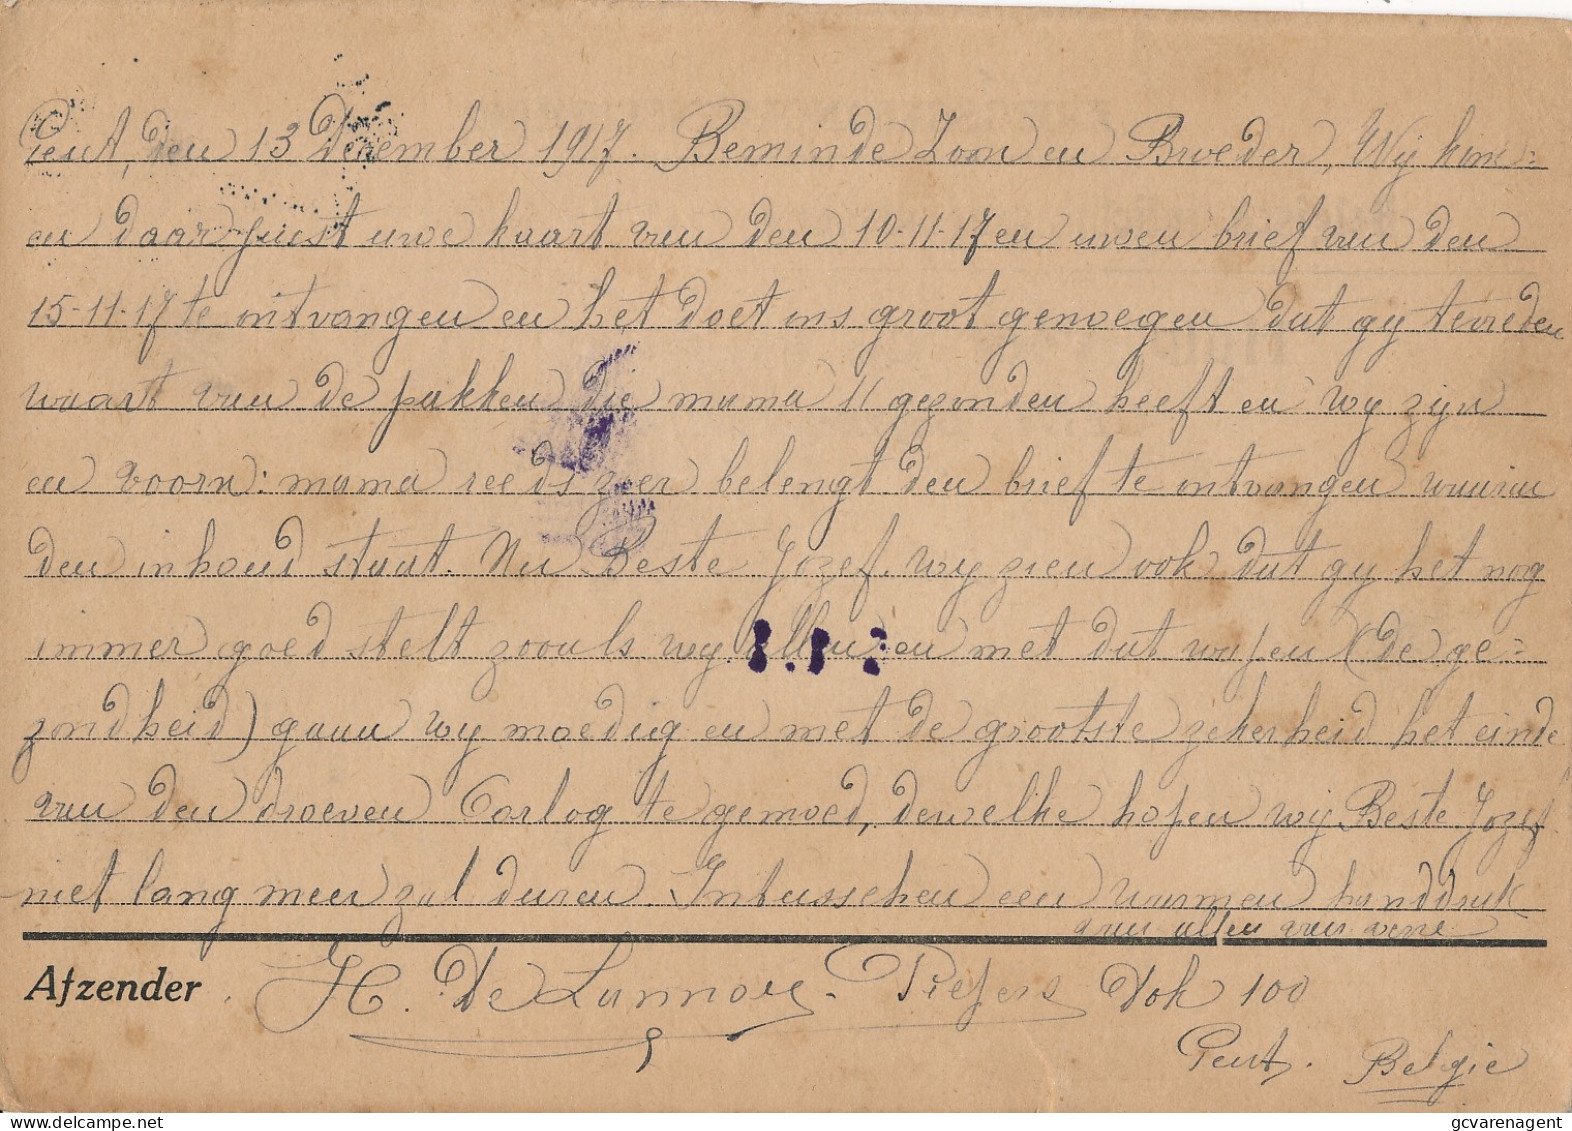 Gent, den 13 December 1917. Beminde Zoon en Broeder, Wij kom=
en daar juist uwe kaart van den 10-11-17 en uwen brief van den
15-11-17 te ontvangen en het doet ons groot genoegen dat gy tevreden
waart van de pakken die mama U gezonden heeft en wy zyn
en voorn: mama reeds zeer belengt den brief te ontvangen waarin
den inhoud staat. Nu Beste Jozef. wy zien ook dat gy het nog
immer goed stelt zooals wy allen en met dat wapen (de ge=
zondheid) gaan wy moedig en met de grootste zekerheid het einde
van den droeven Oorlog te gemoed, dewelke hopen wij Beste Jozef
niet lang meer zal duren. Intusschen een warmen handdruk
van allen van
Afzender H. De Lannoye. Dok 100
Gent. Belgie
gcvarenagent